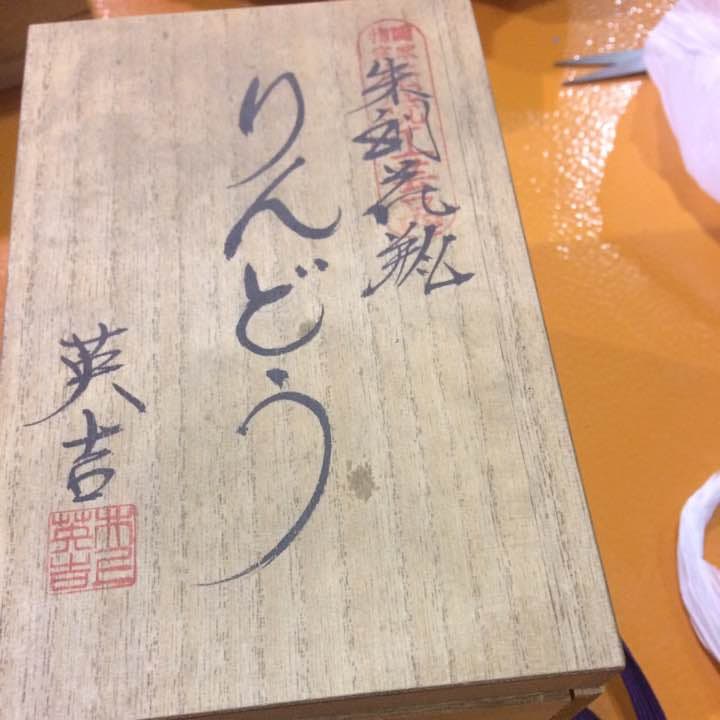 朱銅花瓶
りんどう
英吉
英吉